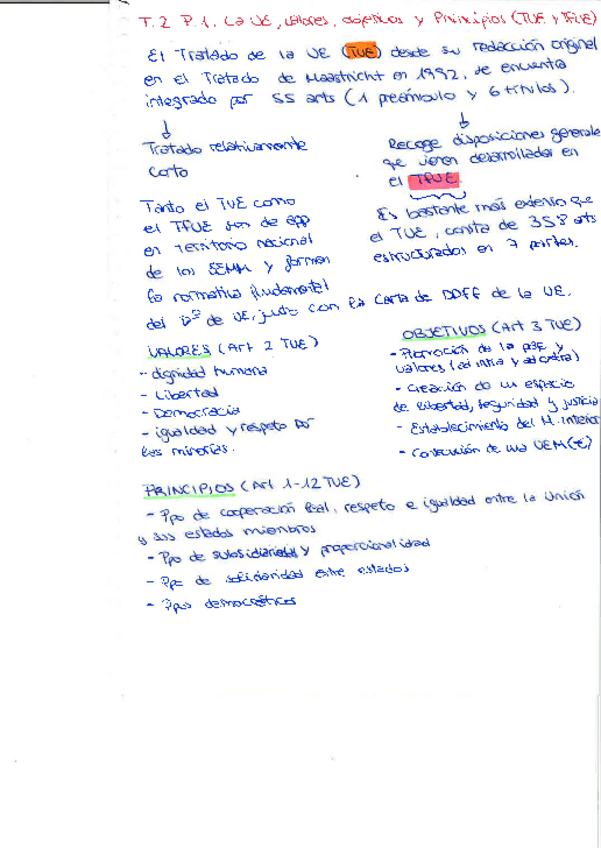 T.2 P.1. La UE, valores, objetivos y Principios (TUE y TFUE)
El Tratado de la UE (TUE) desde su redacción original
en el Tratado de Maastricht en 1992, se encuentra
integrado por 55 arts (1 preámbulo y 6 títulos).
Tratado relativamente
corto
Recoge disposiciones generales
que vienen desarrolladas en
el TFUE.
Tanto el TUE como
el TFUE son de app
en territorio nacional
de los EEMM y forman
la normativa fundamental
del Dº de UE, junto con la Carta de DDFF de la UE.
Es bastante más extenso que
el TUE, consta de 358 arts
estructurados en 7 partes.
VALORES (Art 2 TUE)
- dignidad humana
- Libertad
- Democracia
- igualdad y respeto por
las minorías.
OBJETIVOS (Art 3 TUE)
- Promoción de la paz y
valores (ad intra y ad extra)
- Creación de un espacio
de libertad, seguridad y justicia
- Establecimiento del M. interior
- Consecución de una UEM (€)
PRINCIPIOS (Art 1-12 TUE)
- Ppo de cooperación leal, respeto e igualdad entre la Unión
y sus estados miembros
- Ppo de subsidiariedad y proporcionalidad
- Ppo de solidaridad entre estados
- Ppos democráticos